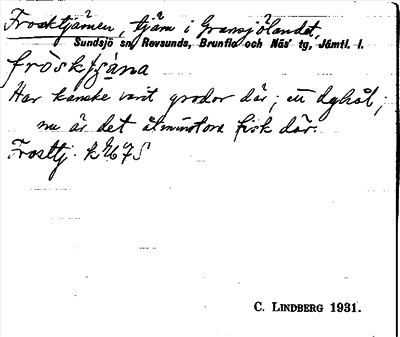 Frosktjärnen, tjärn i Gransjölandet,
Sundsjö sn, Revsunds, Brunflo och Näs' tg, Jämtl. l.
frosktjäna
Har kanske varit grodor där; ett dyhål;
nu är det åtminstone fisk där.
Frosttj. k
C. LINDBERG 1931.